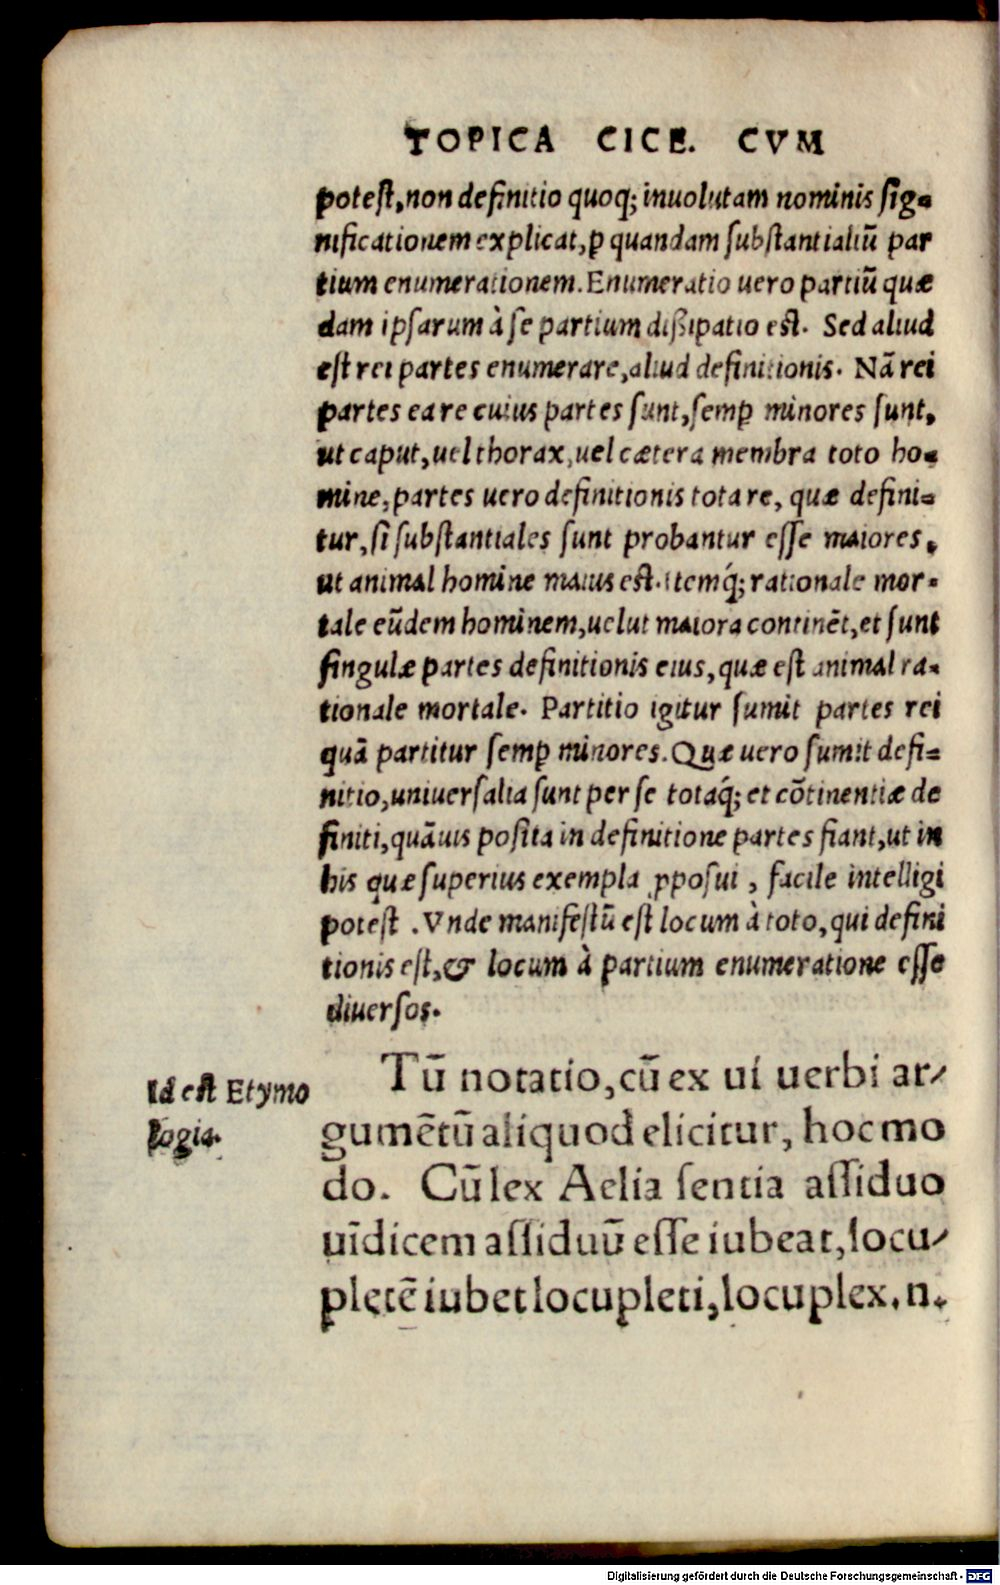 TOPICA CICE. CVM
potest, non definitio quoq; inuolutam nominis sig-
nificationem explicat, ꝑ quandam substantialiū par
tium enumerationem. Enumeratio uero partiū quæ
dam ipsarum à se partium dißipatio est. Sed aliud
est rei partes enumerare, aliud definitionis. Nā rei
partes ea re cuius partes sunt, semꝑ minores sunt,
ut caput, uel thorax, uel cætera membra toto ho-
mine, partes uero definitionis tota re, quæ defini-
tur, si substantiales sunt probantur esse maiores,
ut animal homine maius est. itemq́; rationale mor-
tale eūdem hominem, uelut maiora continēt, et sunt
singulæ partes definitionis eius, quæ est animal ra-
tionale mortale. Partitio igitur sumit partes rei
quā partitur semꝑ minores. Quæ uero sumit defi-
nitio, uniuersalia sunt per se totaq́; et cōtinentiæ de
finiti, quāuis posita in definitione partes fiant, ut in
his quæ superius exempla ꝓposui, facile intelligi
potest. Vnde manifestū est locum à toto, qui defini
tionis est, & locum à partium enumeratione esse
diuersos.
Id est Etymo
logia.
Tū notatio, cū ex ui uerbi ar-
gumētū aliquod elicitur, hoc mo
do. Cū lex Aelia sentia assiduo
uīdicem assiduū esse iubeat, locu-
pletē iubet locupleti, locuplex. n.
Digitalisierung gefördert durch die Deutsche Forschungsgemeinschaft - DFG